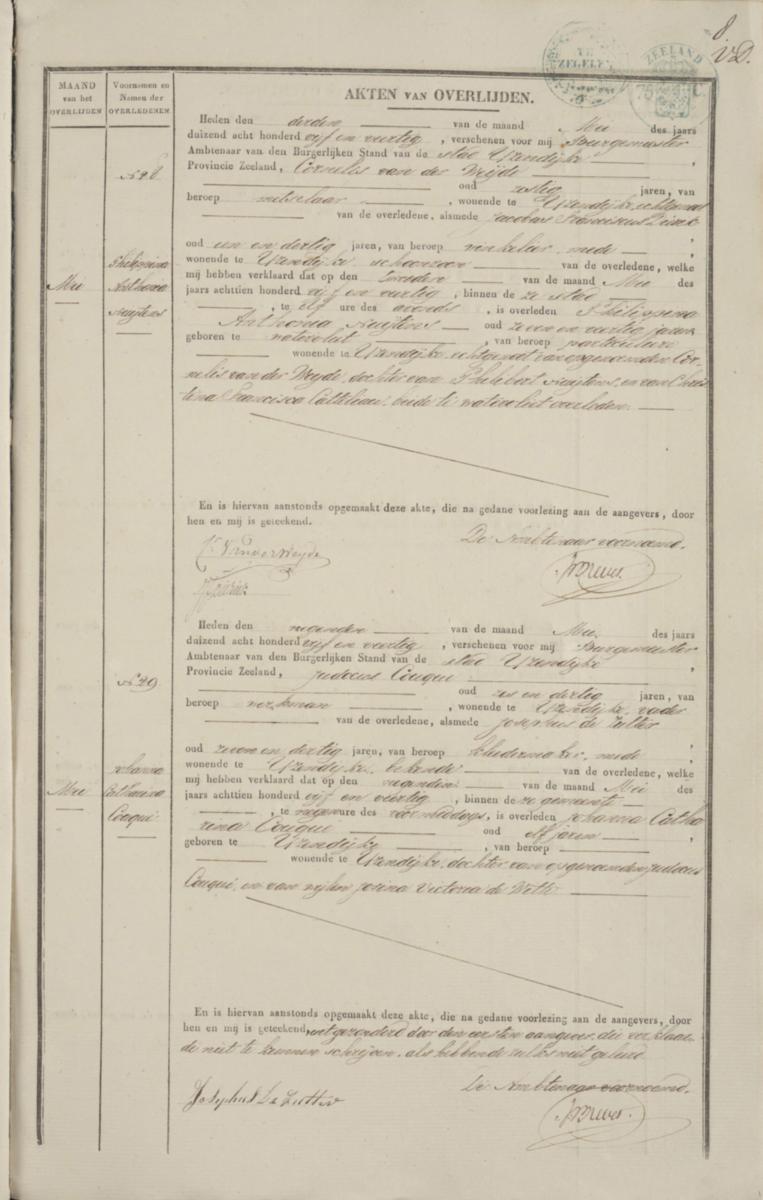 8
VD.
ZEGELEN
ZEELAND
75 C.
MAAND
van het
OVERLIJDEN
Voornomen en
Namen der
OVERLEDENEN.
AKTEN VAN OVERLIJDEN.
Heden den derden van de maand Mei des jaars
duizend acht honderd vijf en veertig, verschenen voor mij Burgemeester
Ambtenaar van den Burgerlijken Stand van de stad IJzendijke,
Provincie Zeeland, Cornelis van der Weijde
oud zestig jaren, van
beroep metselaar, wonende te IJzendijke, echtgenoot
van de overledene, alsmede Jacobus Franciscus
oud een en dertig jaren, van beroep winkelier, mede,
wonende te IJzendijke schoonzoon van de overledene, welke
mij hebben verklaard dat op den tweeden van de maand Mei des
jaars achttien honderd vijf en veertig, binnen deze stad
, te elf ure des avonds, is overleden Philippina
Anthonia Nuijtens oud zeven en veertig jaren
geboren te Watervliet, van beroep particuliere
wonende te IJzendijke, echtgenoot van opgenoemden Cor-
nelis van der Weijde, dochter van Philibert Nuijtens, en van Chris
tina Francisca Catteleau, beide te Watervliet overleden.
No 28
Mei
Philippina
Anthonia
Nuijtens
En is hiervan aanstonds opgemaakt deze akte, die na gedane voorlezing aan de aangevers, door
hen en mij is geteekend.
De Ambtenaar voornoemd.
C. VanderWeyde
Heden den negenden van de maand Mei des jaars
duizend acht honderd vijf en veertig, verschenen voor mij Burgemeester
Ambtenaar van den Burgerlijken Stand van de stad IJzendijke,
Provincie Zeeland, Judocus Couqui
oud zes en dertig jaren, van
beroep werkman, wonende te IJzendijke, vader
van de overledene, alsmede Josephus de Zutter
oud zeven en dertig jaren, van beroep kleedermaker, mede,
wonende te IJzendijke, bekende van de overledene, welke
mij hebben verklaard dat op den negenden van de maand Mei des
jaars achttien honderd vijf en veertig, binnen deze gemeente
, te negen ure des voormiddags, is overleden Johanna Catha
rina Couqui oud elf jaren,
geboren te IJzendijke, van beroep
wonende te IJzendijke, dochter van opgenoemden Judocus
Couqui, en van wijlen Josina Victoria de Wette
No 29
Mei
Johanna
Catharina
Couqui
En is hiervan aanstonds opgemaakt deze akte, die na gedane voorlezing aan de aangevers, door
hen en mij is geteekend, uitgezonderd door den eersten aangever, die verklaar-
de niet te kunnen schrijven, als hebbende zulks niet geleerd.
De Ambtenaar voornoemd.
Josephus De Zutter